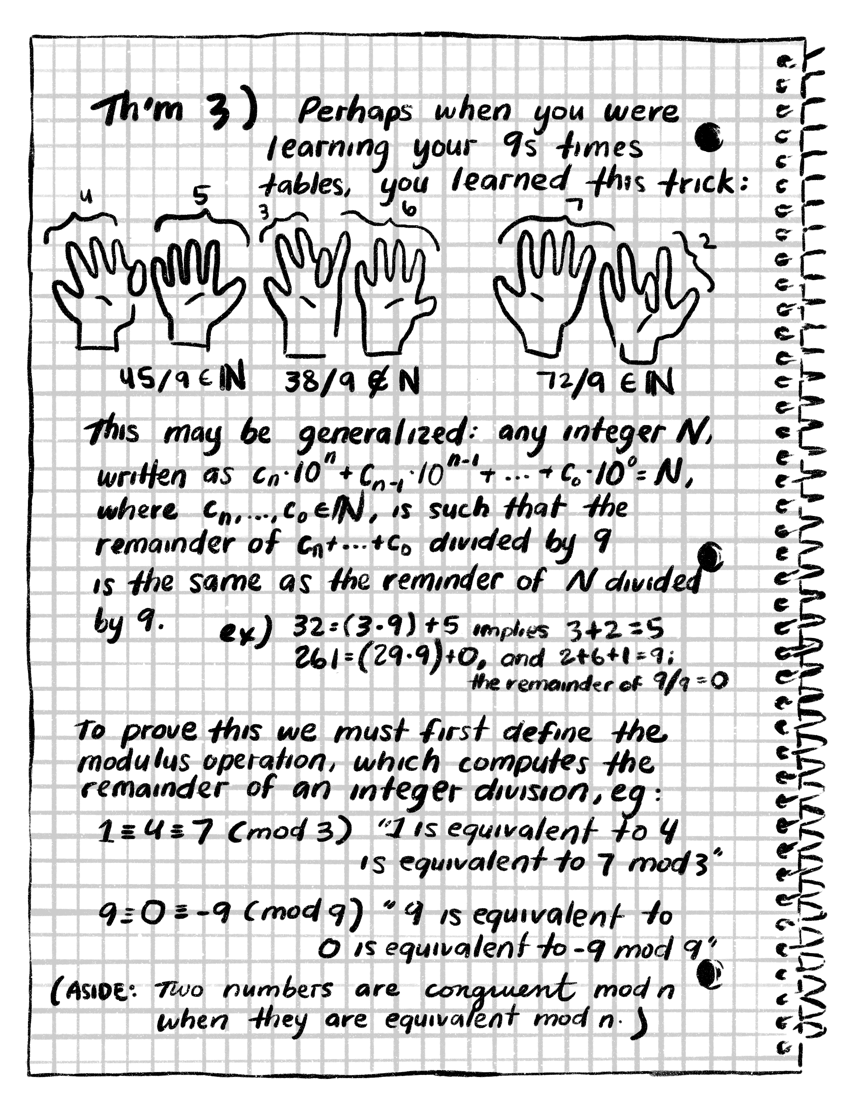 Th'm 3) Perhaps when you were
learning your 9s times
tables, you learned this trick:
4 5 3 6 7 2
45/9 ∈ ℕ 38/9 ∉ N 72/9 ∈ ℕ
This may be generalized: any integer N,
written as cₙ·10ⁿ + cₙ₋₁·10ⁿ⁻¹ + ... + c₀·10⁰ = N,
where cₙ,...,c₀ ∈ ℕ, is such that the
remainder of cₙ+...+c₀ divided by 9
is the same as the reminder of N divided
by 9.
ex) 32=(3·9)+5 implies 3+2=5
261=(29·9)+0, and 2+6+1=9;
the remainder of 9/9=0
To prove this we must first define the
modulus operation, which computes the
remainder of an integer division, eg:
1≡4≡7 (mod 3) "1 is equivalent to 4
is equivalent to 7 mod 3"
9≡0≡-9 (mod 9) "9 is equivalent to
0 is equivalent to -9 mod 9"
(ASIDE: Two numbers are congruent mod n
when they are equivalent mod n.)